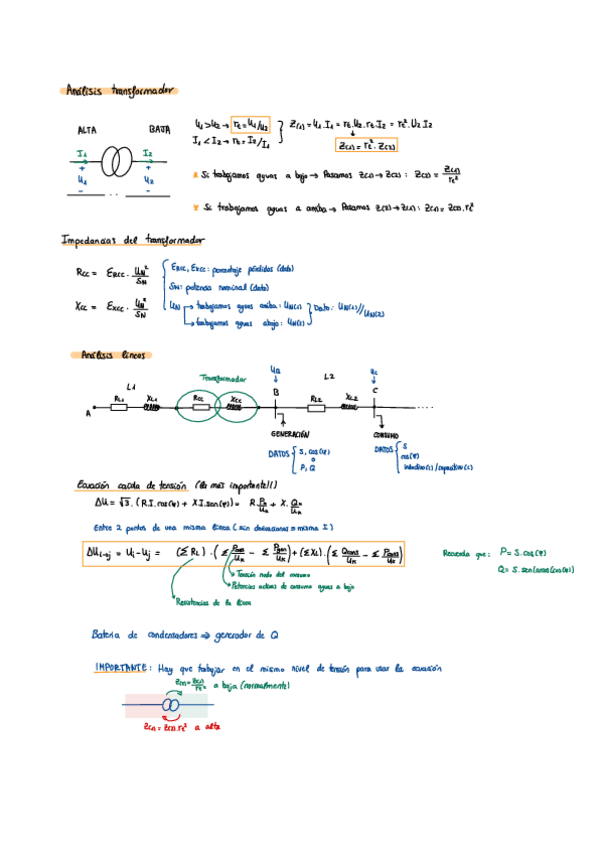 Análisis transformador
ALTA BAJA
I1 I2
U1 U2
U1>U2 → rt = U1/U2
I1 < I2 → rt = I2/I1
Z(1) = U1.I1 = rt.U2.rt.I2 = rt².U2.I2
Z(1) = rt².Z(2)
Si trabajamos aguas a bajo → Pasamos Z(1) → Z(2) : Z(2) = Z(1)/rt²
Si trabajamos aguas a arriba → Pasamos Z(2) → Z(1) : Z(1) = Z(2).rt²
Impedancias del transformador
Rcc = εRcc . UN²/SN
Xcc = εxcc . UN²/SN
εRcc, εxcc : porcentaje pérdidas (dato)
SN : potencia nominal (dato)
UN → trabajamos aguas arriba : UN(1)
→ trabajamos aguas abajo : UN(2)
Dato : UN(1)//UN(2)
Análisis líneas
L1 Transformador UB L2 UC
RL1 XL1 Rcc Xcc B RL2 XL2 C
A
GENERACIÓN CONSUMO
DATOS S, cos(φ) o P, Q
DATOS S cos(φ) inductivo(s)/capacitivo(s)
Ecuación caída de tensión (la más importante!!)
ΔU = √3 . (R.I.cos(φ) + X.I.sen(φ)) = R.Pk/Uk + X.Qk/Uk
Entre 2 puntos de una misma línea (sin derivaciones = misma I)
ΔUi-j = Ui - Uj = (Σ RL) . (Σ Pcons/Uk - Σ Pgen/Uk) + (Σ XL) . (Σ Qcons/Uk - Σ
Recuerda que : P = S.cos(φ)
Q = S.sen(arcos(cos(φ))
Tensión nudo del consumo
Potencias activas de consumo aguas a bajo
Resistencias de la línea
Batería de condensadores ⇒ generador de Q
IMPORTANTE : Hay que trabajar en el mismo nivel de tensión para usar la ecuación
Z(2) = Z(1)/rt² a baja (normalmente)
Z(1) = Z(2).rt² a alta